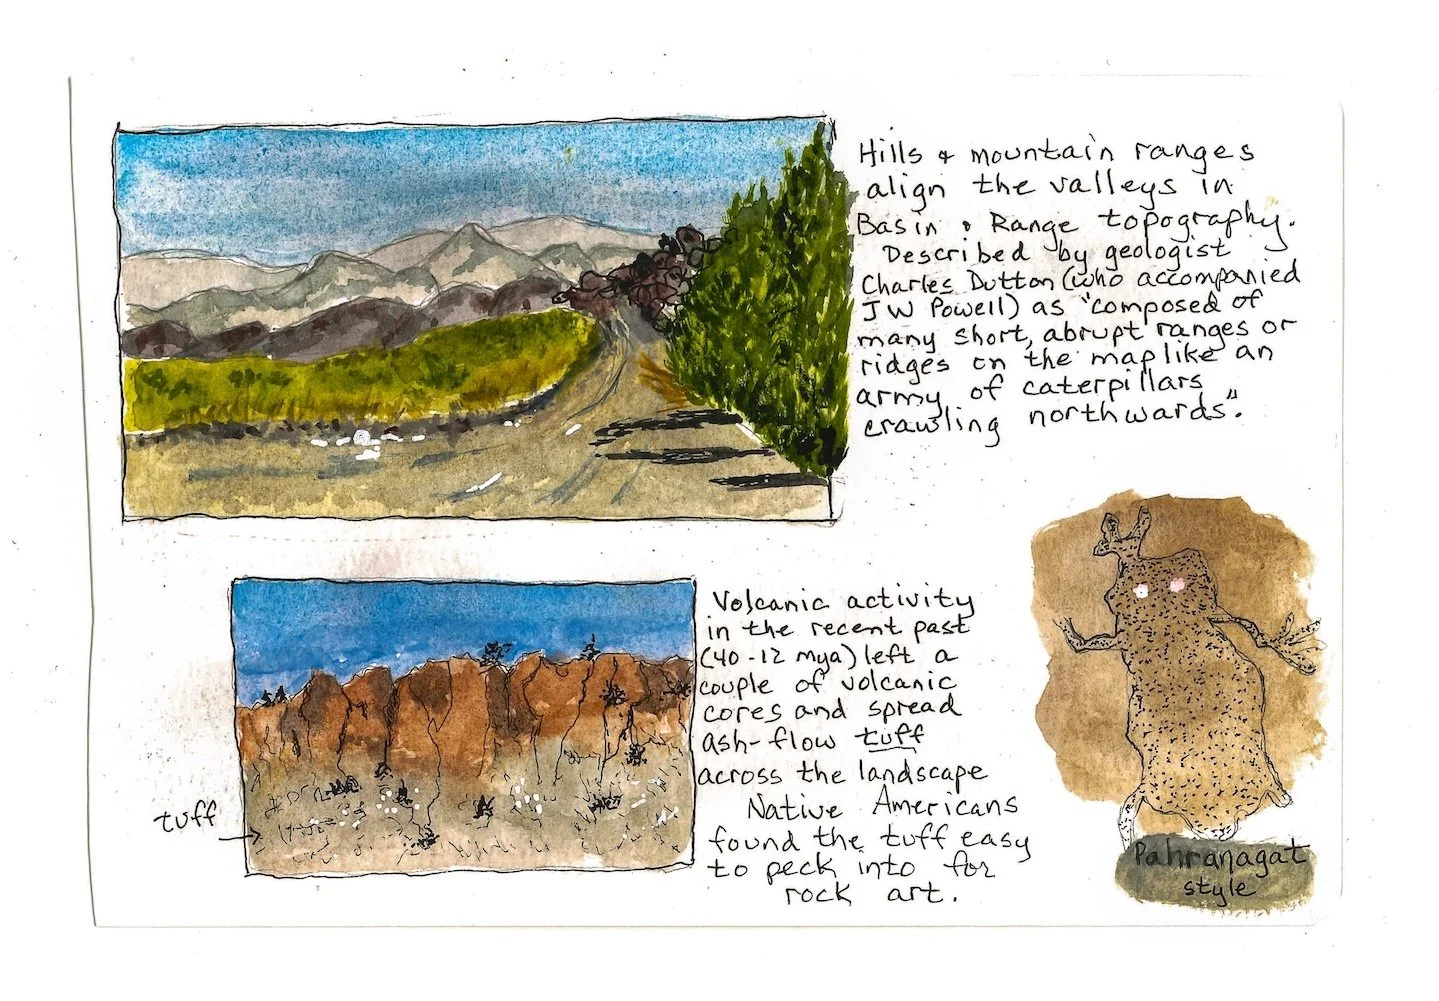 Hills & mountain ranges
align the valleys in
Basin & Range topography.
Described by geologist
Charles Dutton (who accompanied
JW Powell) as "composed of
many short, abrupt ranges or
ridges on the map like an
army of caterpillars
crawling northwards".
Volcanic activity
in the recent past
(40-12 mya) left a
couple of volcanic
cores and spread
ash-flow tuff
across the landscape
Native Americans
found the tuff easy
to peck into for
rock art.
tuff
Pahranagat
style